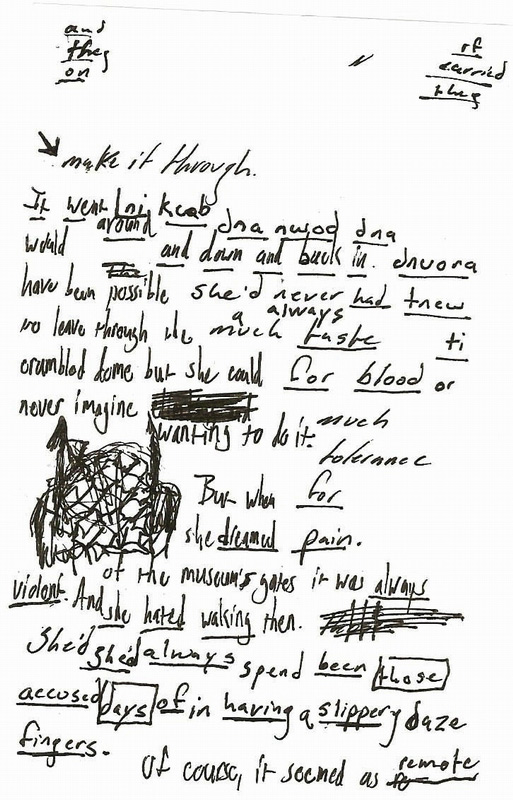 and
they
on
rf
carried
they
make it through.
It went lni kcab dna nwod dna
would around and down and back in. dnuora
have been possible she'd never had tnew
a always
to leave through the much taste ti
crumbled dome but she could for blood or
never imagine
wanting to do it. much
tolerance
But when for
she dreamed pain.
of the museum's gates it was always
violent. And she hated waking then.
She'd she'd always spend been those
accused days of in having a slippery daze
fingers.
Of course, it seemed as remote